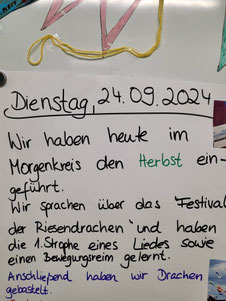 Dienstag, 24.09.2024
Wir haben heute im
Morgenkreis den Herbst ein-
geführt.
Wir sprachen über das "Festival
der Riesendrachen" und haben
die 1. Strophe eines Liedes sowie
einen Bewegungsreim gelernt.
Anschließend haben wir Drachen
gebastelt.